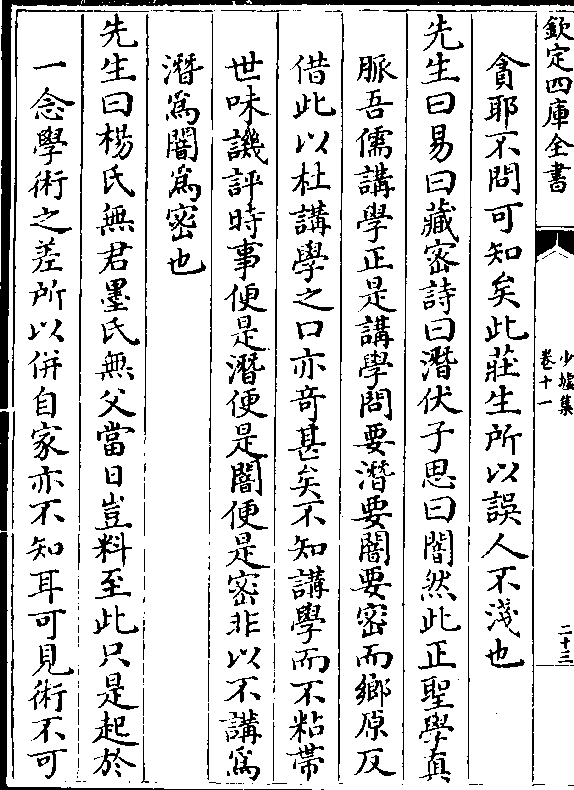 欽定四庫全書
少墟集
卷十一
二十三
貪耶不問可知矣此莊生所以誤人不淺也
先生曰易曰藏密詩曰潛伏子思曰闇然此正聖學真
脈吾儒講學正是講學問要潛要闇要密而鄉原反
借此以杜講學之口亦竒甚矣不知講學而不粘帶
世味譏評時事便是潛便是闇便是密非以不講爲
潛爲闇爲密也
先生曰楊氏無君墨氏無父當日豈料至此只是起於
一念學術之差所以併自家亦不知耳可見術不可